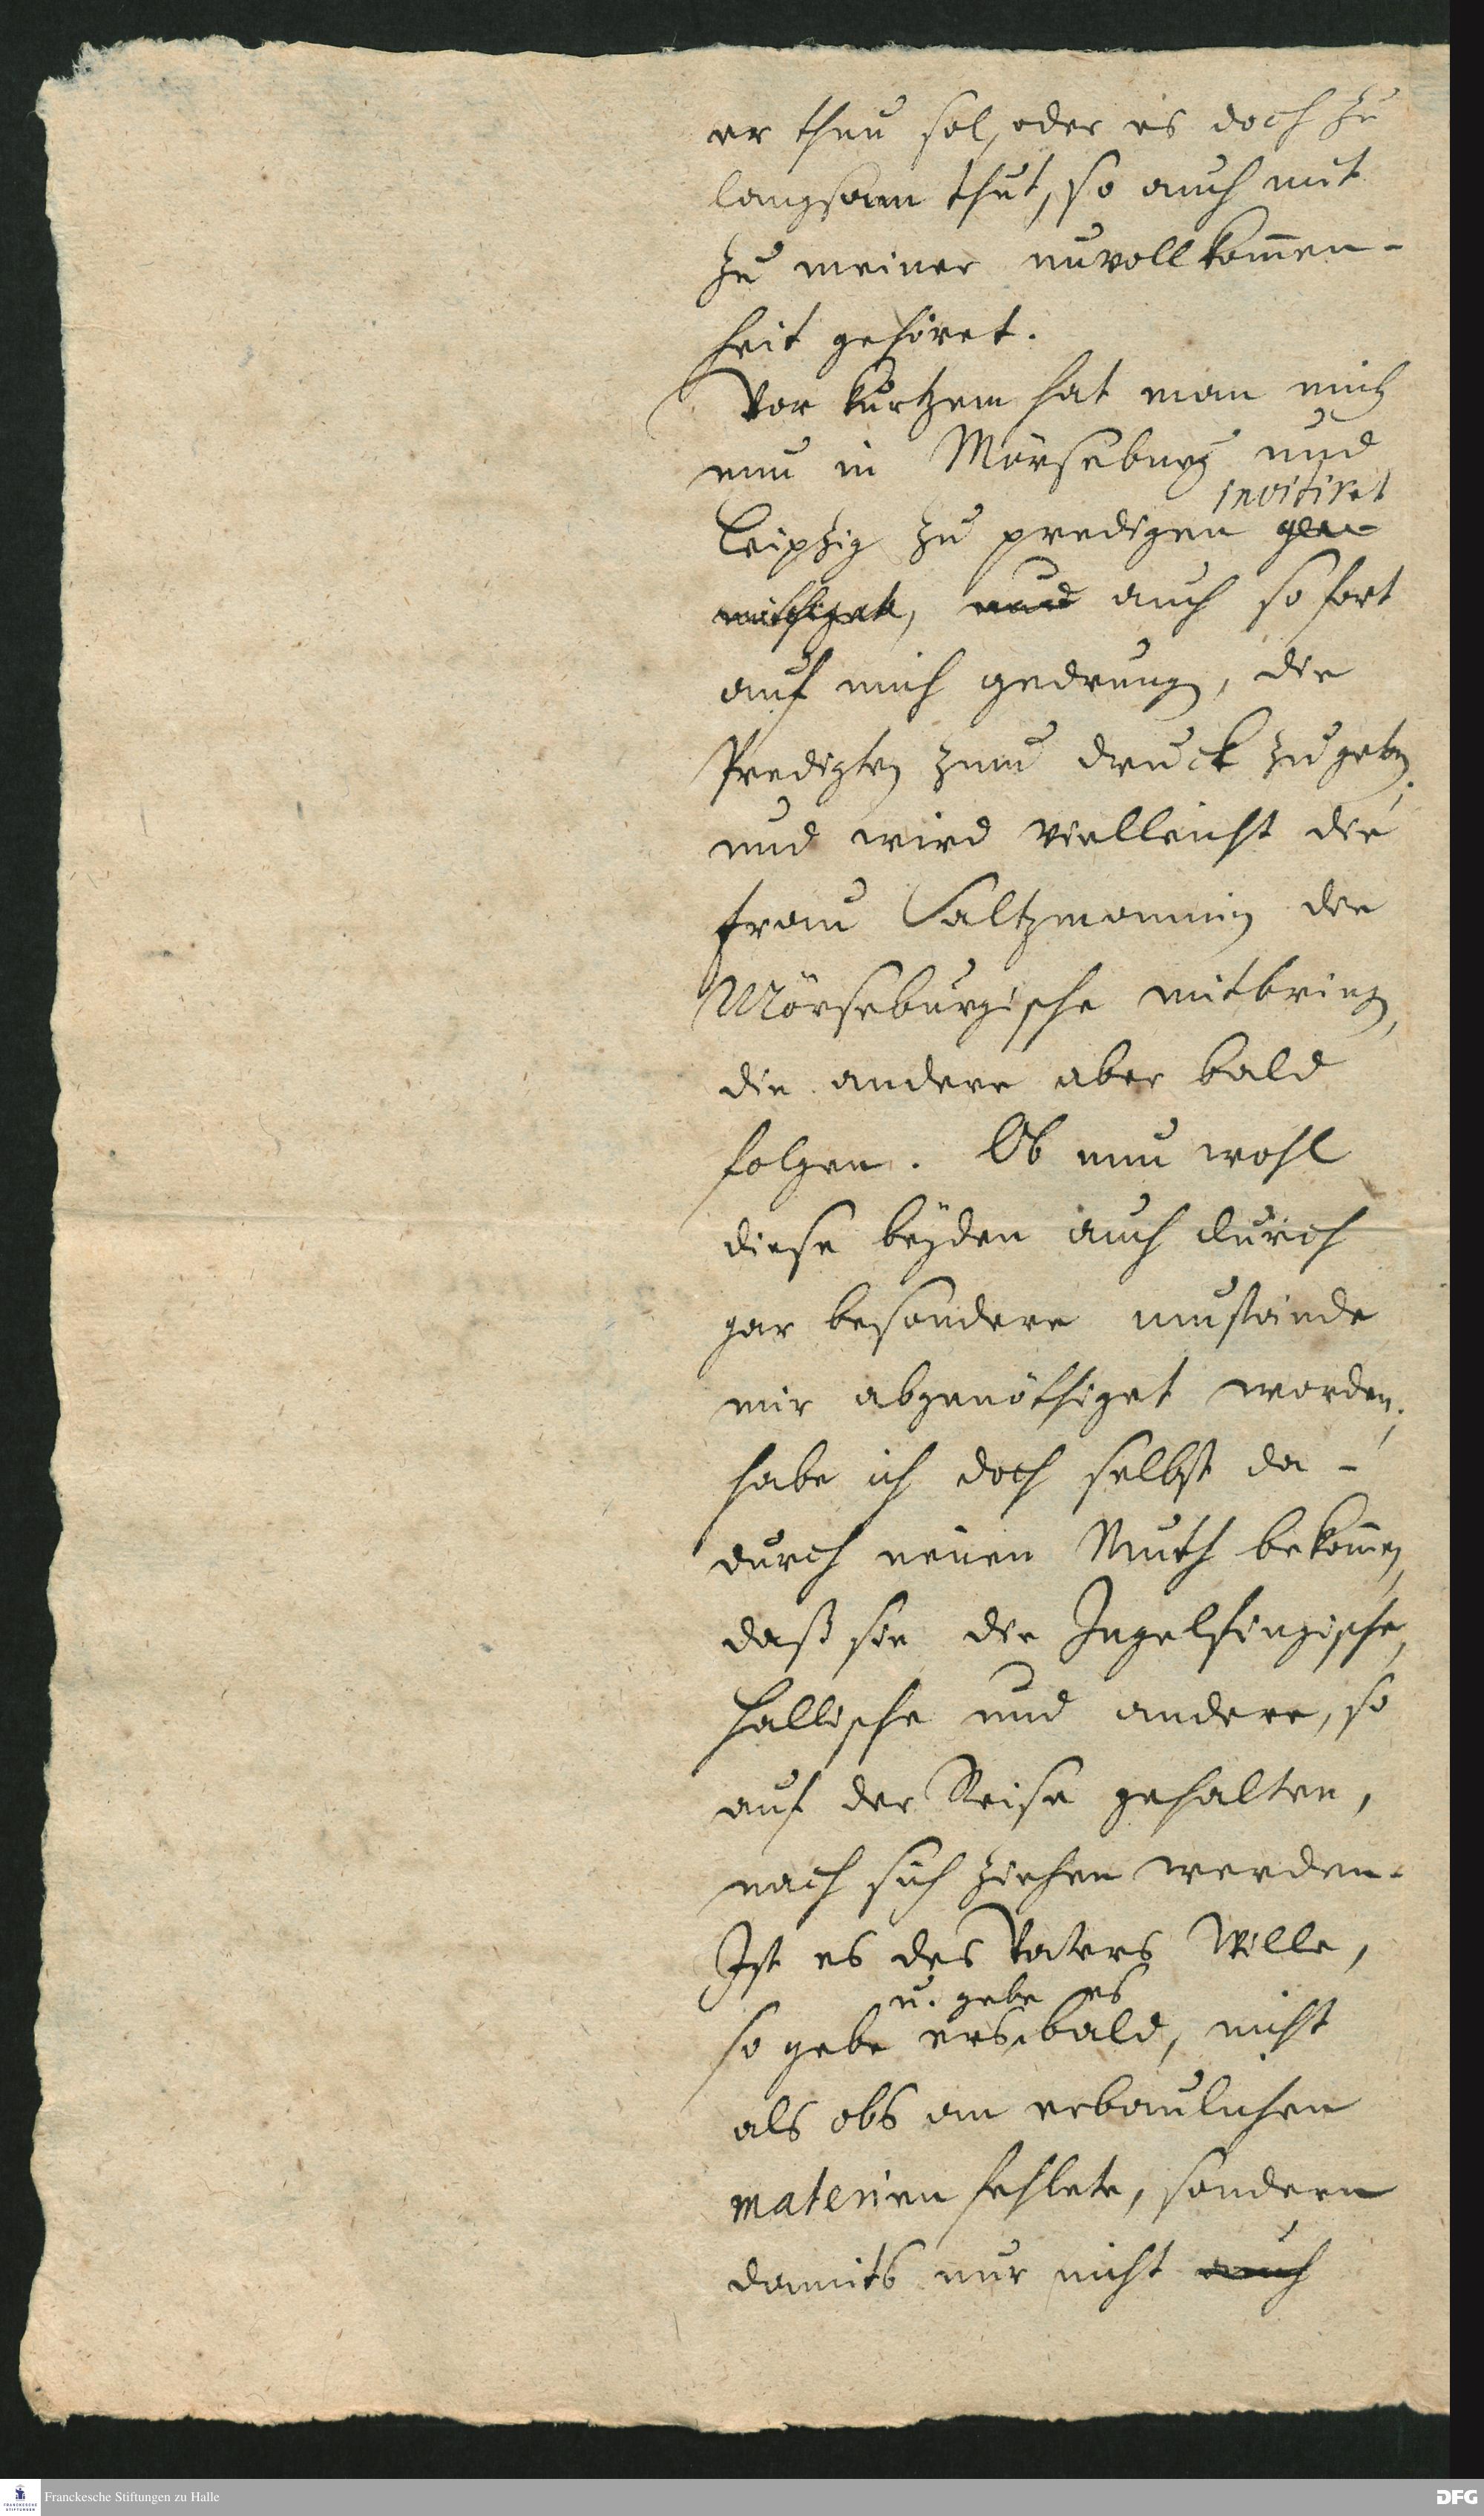 er thun sol, oder es doch zu
langsam thut, so auch mit
zu meiner unvollkom̄en-
heit gehöret.
Vor kurtzem hat man mich
nun in Mörseburg und
invitiret
Leipzig zu predigen gen-
nöthiget, und auch sofort
auf mich gedrung, die
Predigten zum druck zu geben;
und wird vielleicht die
Frau Saltzmannin die
Mörseburgische mitbring,
die andere aber bald
folgen. Ob nun wohl
diese beÿden auch durch
gar besondere umstände
mir abgenöthiget worden;
habe ich doch selbst da-
durch neuen Muth bekom̄en,
daß sie die Ingelfingische,
Hallische und andere, so
auf der Reise gehalten,
nach sich ziehen werden.
Ist es des Vaters Wille,
u. gebe es
so gebe ers bald, nicht
als obs an erbaulichen
materien fehlete, sondern
damits nur nicht auch
Franckesche Stiftungen zu Halle
DFG